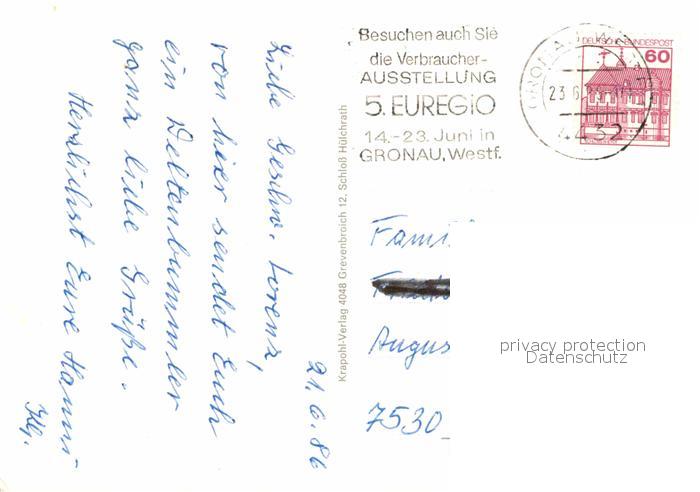 Besuchen auch Sie
die Verbraucher-
AUSSTELLUNG
5. EUREGIO
14.-23. Juni in
GRONAU, Westf.
4432
DEUTSCHE BUNDESPOST
60
21.6.86
Liebe Geschw. Lorenz,
von hier sendet Euch
ein Weltenbummler
ganz liebe Grüße.
Herzlichst Eure Hanni
Krapohl-Verlag 4048 Grevenbroich 12, Schloß Hülchrath
Fami
Augus
7530
privacy protection
Datenschutz